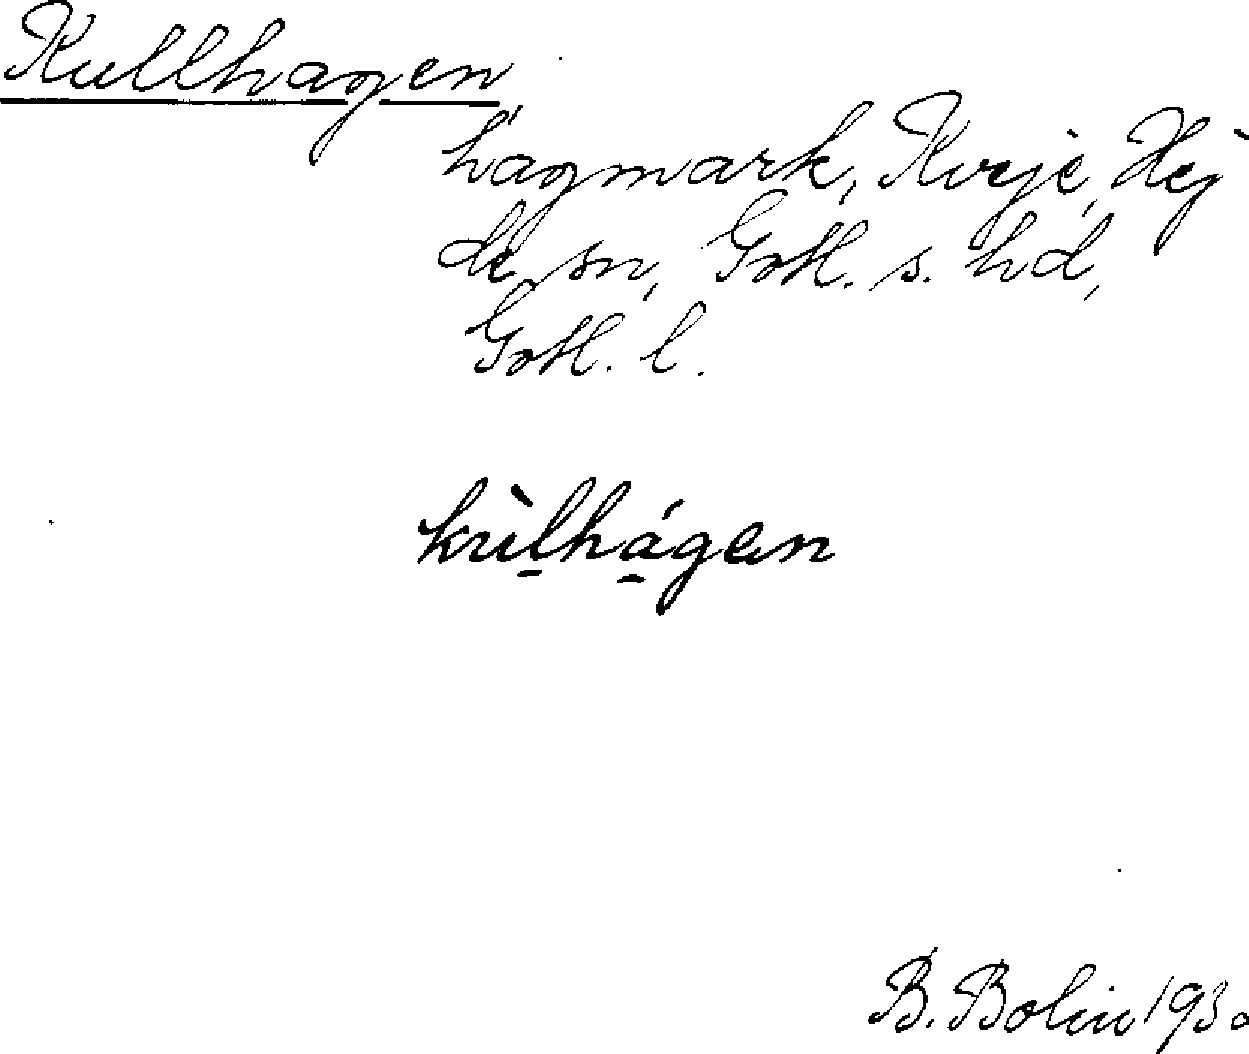 Kullhagen,
hagmark, Kvije, Hej
de sn, Gotl. s. hd,
Gotl. l.
kùlhágen
B. Bolin 1930